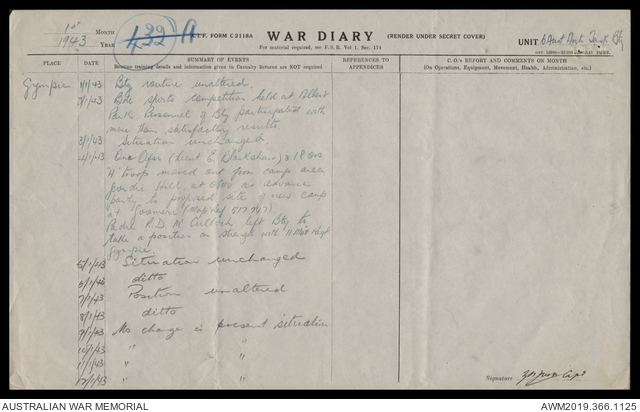 1st Month
1943 Year
A
A.I.F. FORM C2118A
WAR DIARY
(RENDER UNDER SECRET COVER)
For material required, see F.S.R. Vol 1. Sec. 174
UNIT 6 Aust Anti Tank Bty
PLACE
DATE
SUMMARY OF EVENTS
Routine training details and information given in Casualty Returns are NOT required
REFERENCES TO
APPENDICES
C.O.'s REPORT AND COMMENTS ON MONTH
(On Operations, Equipment, Movement, Health, Administration, etc.)
Gympie 1/1/43 Bty routine unaltered.
2/1/43 Bde sports competition held at Albert
Park. Personnel of Bty participated with
more than satisfactory results.
3/1/43 Situation unchanged
4/1/43 One Ofer (Lieut E. Blackshaw) & 18 ORs
"A" troop moved out from camp area,
Hill, at 0800 as advance
party to proposed site of new camp
at (Map Ref 517967)
Padre R.D. McCulloch left Bty to
take a position on strength with 11 Mot Regt
Gympie
5/1/43 Situation unchanged
6/1/43 ditto
7/1/43 Position unaltered
8/1/43 ditto
9/1/43 No change in present situation
10/1/43 " "
11/1/43 " "
12/1/43 " "
Signature Capt
AUSTRALIAN WAR MEMORIAL
AWM2019.366.1125